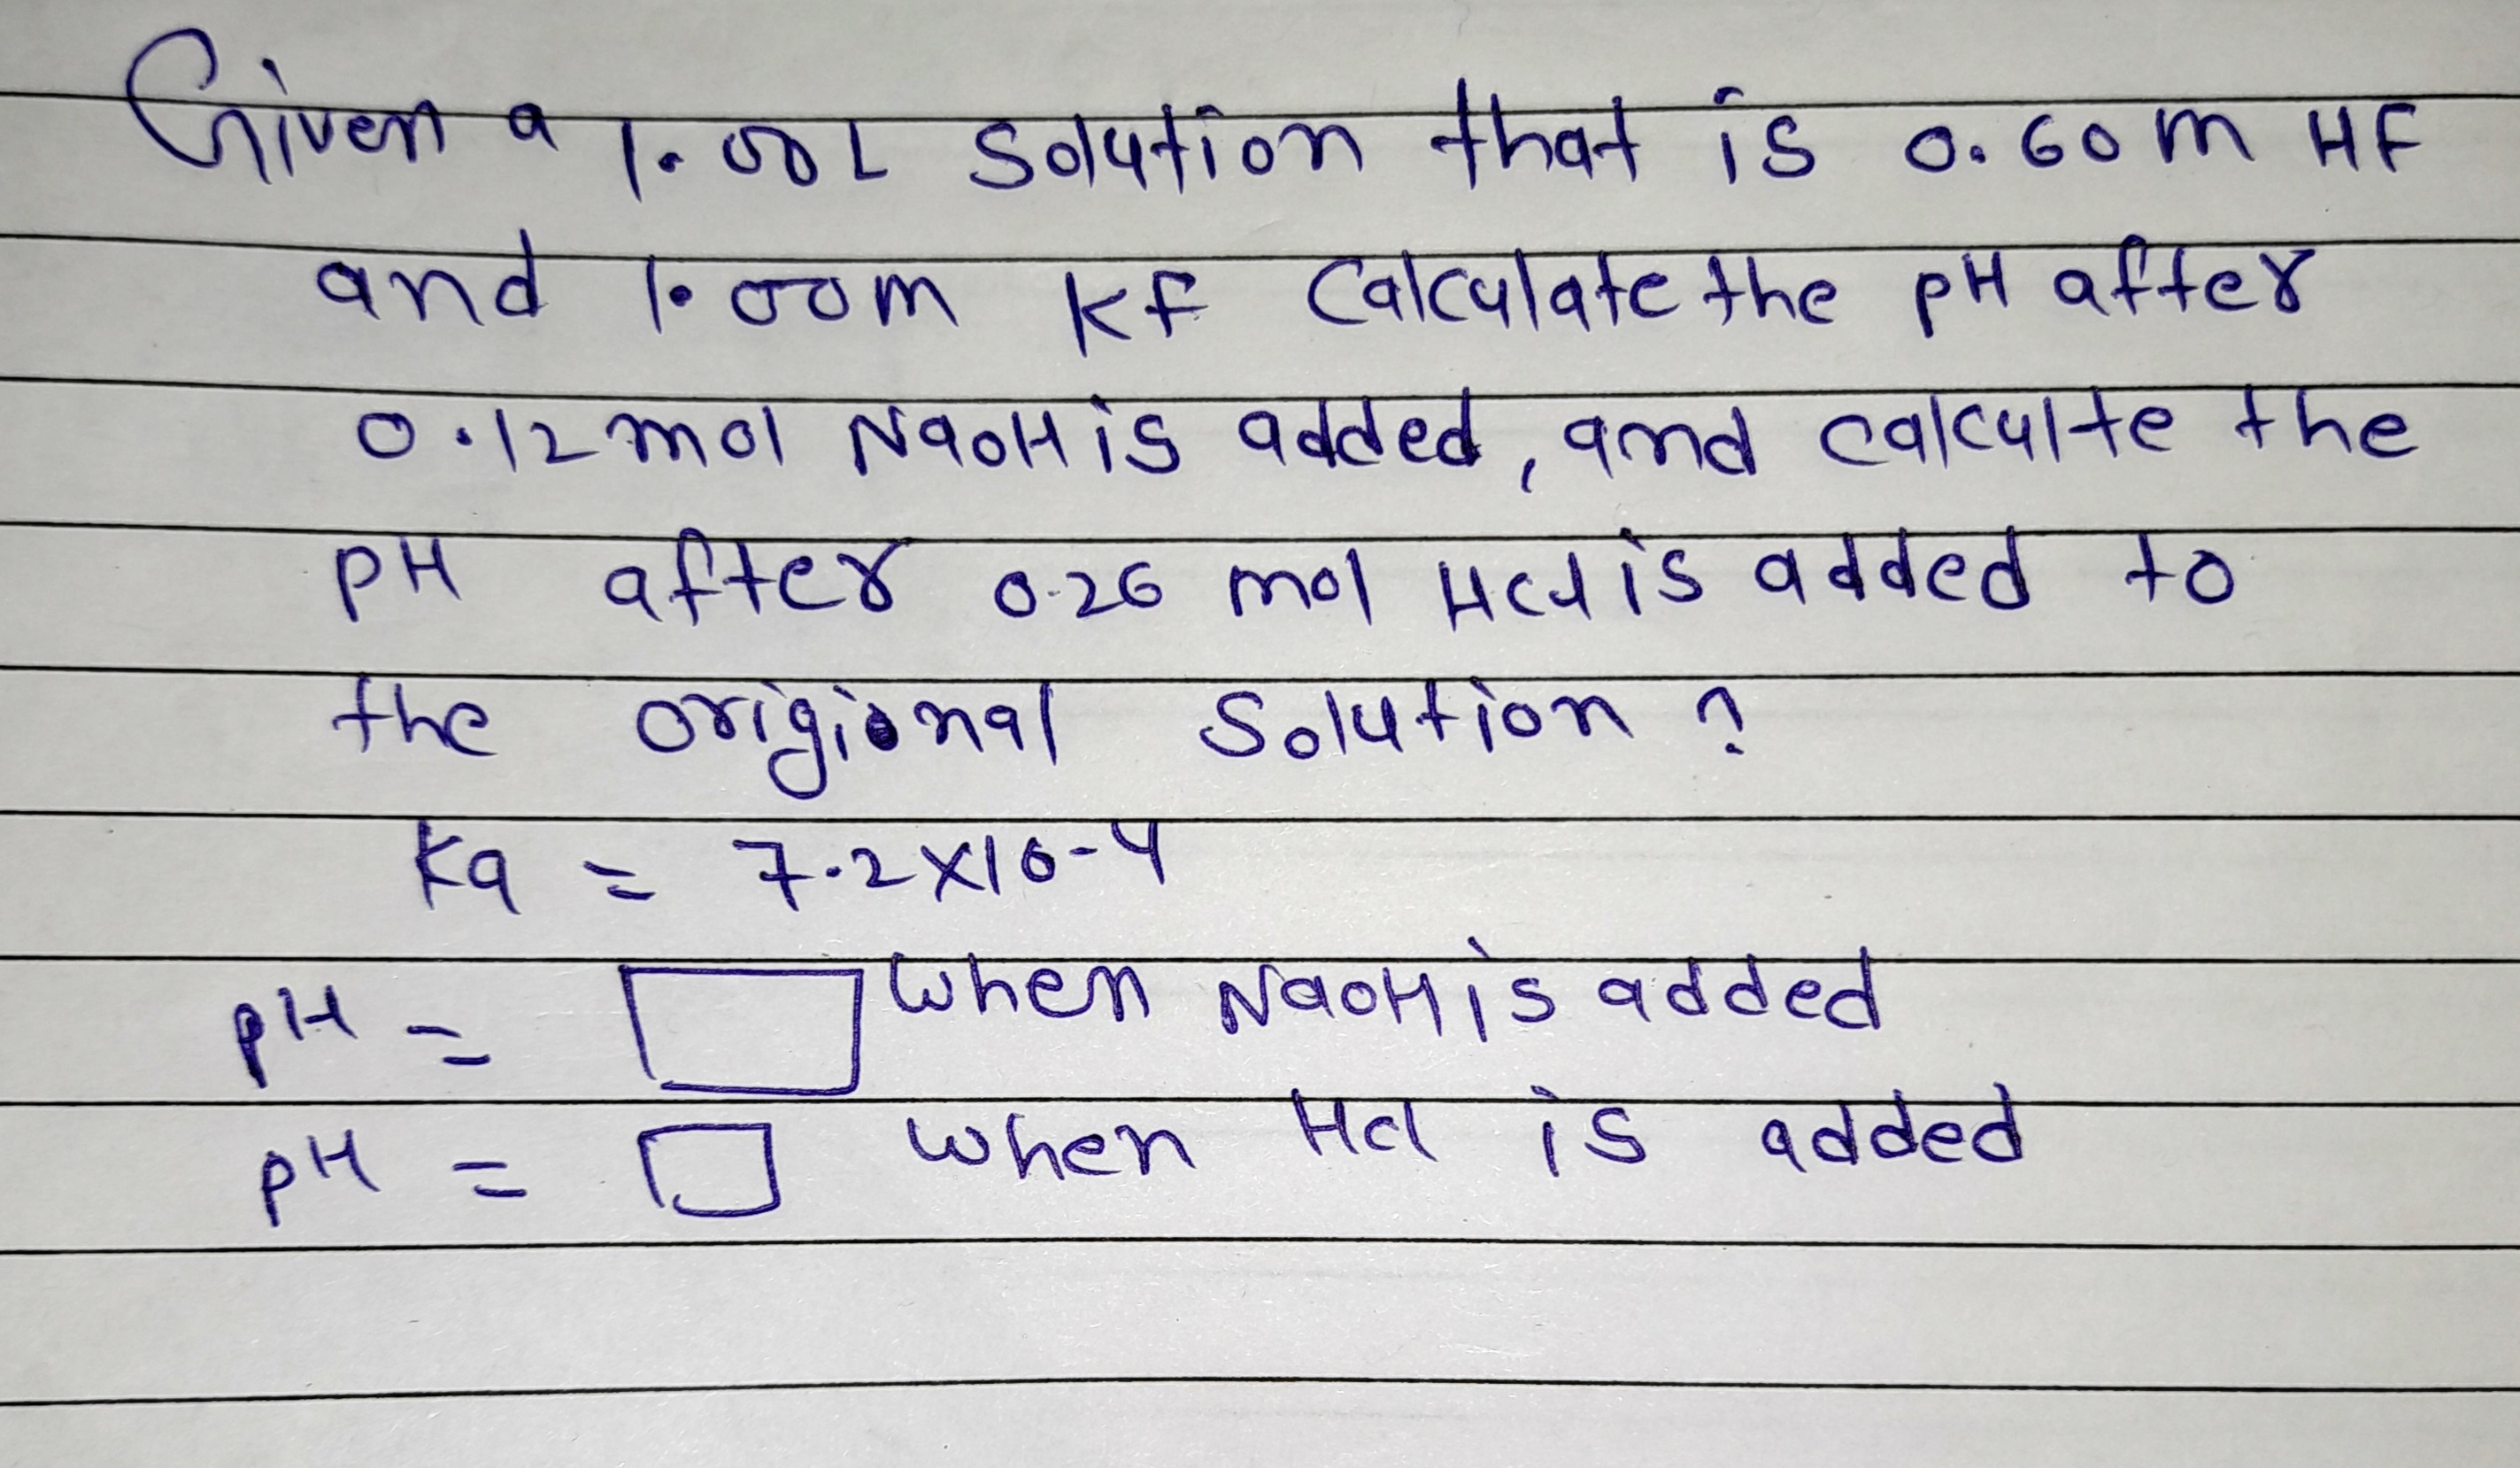 Given a 1.00L solution that is 0.60 m HF
and 1.00m KF calculate the pH after
0.12 mol NaOH is added, and calculte the
PH after 0.26 mol Hcl is added to
the origional solution ?
Ka = 7.2x10-4
pH = when NaOH is added
pH = when Hcl is added